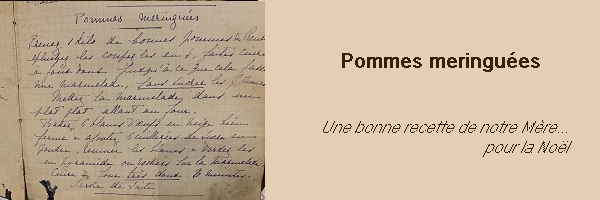 Pommes meringuées
Prenez 1 kilo de bonnes pommes de
les coupez les en 4, faites cuire
à fond dans jusqu'à ce que cela fasse
une marmelade, sans sucrer les
Mettez la marmelade dans un
plat plat allant au four.
Battez 6 blancs d'œufs en neige bien
ferme & ajoutez 6 cuillerées de sucre en
poudre les blancs & versez les
en pyramide ou rochers sur la marmelade
Cuire au four très doux 20 minutes.
de suite
Pommes meringuées
Une bonne recette de notre Mère...
pour la Noël